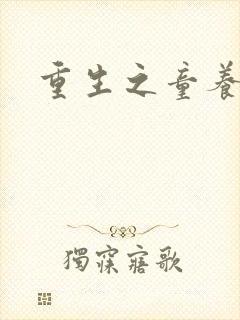 重生之童养
獨寐寤歌